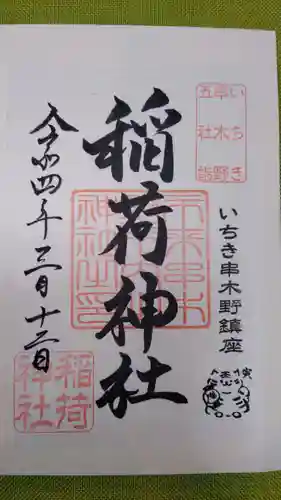 いちき
串木野
五社詣
いちき串木野鎮座
稲荷神社
稲荷
神社
令和四年三月十三日